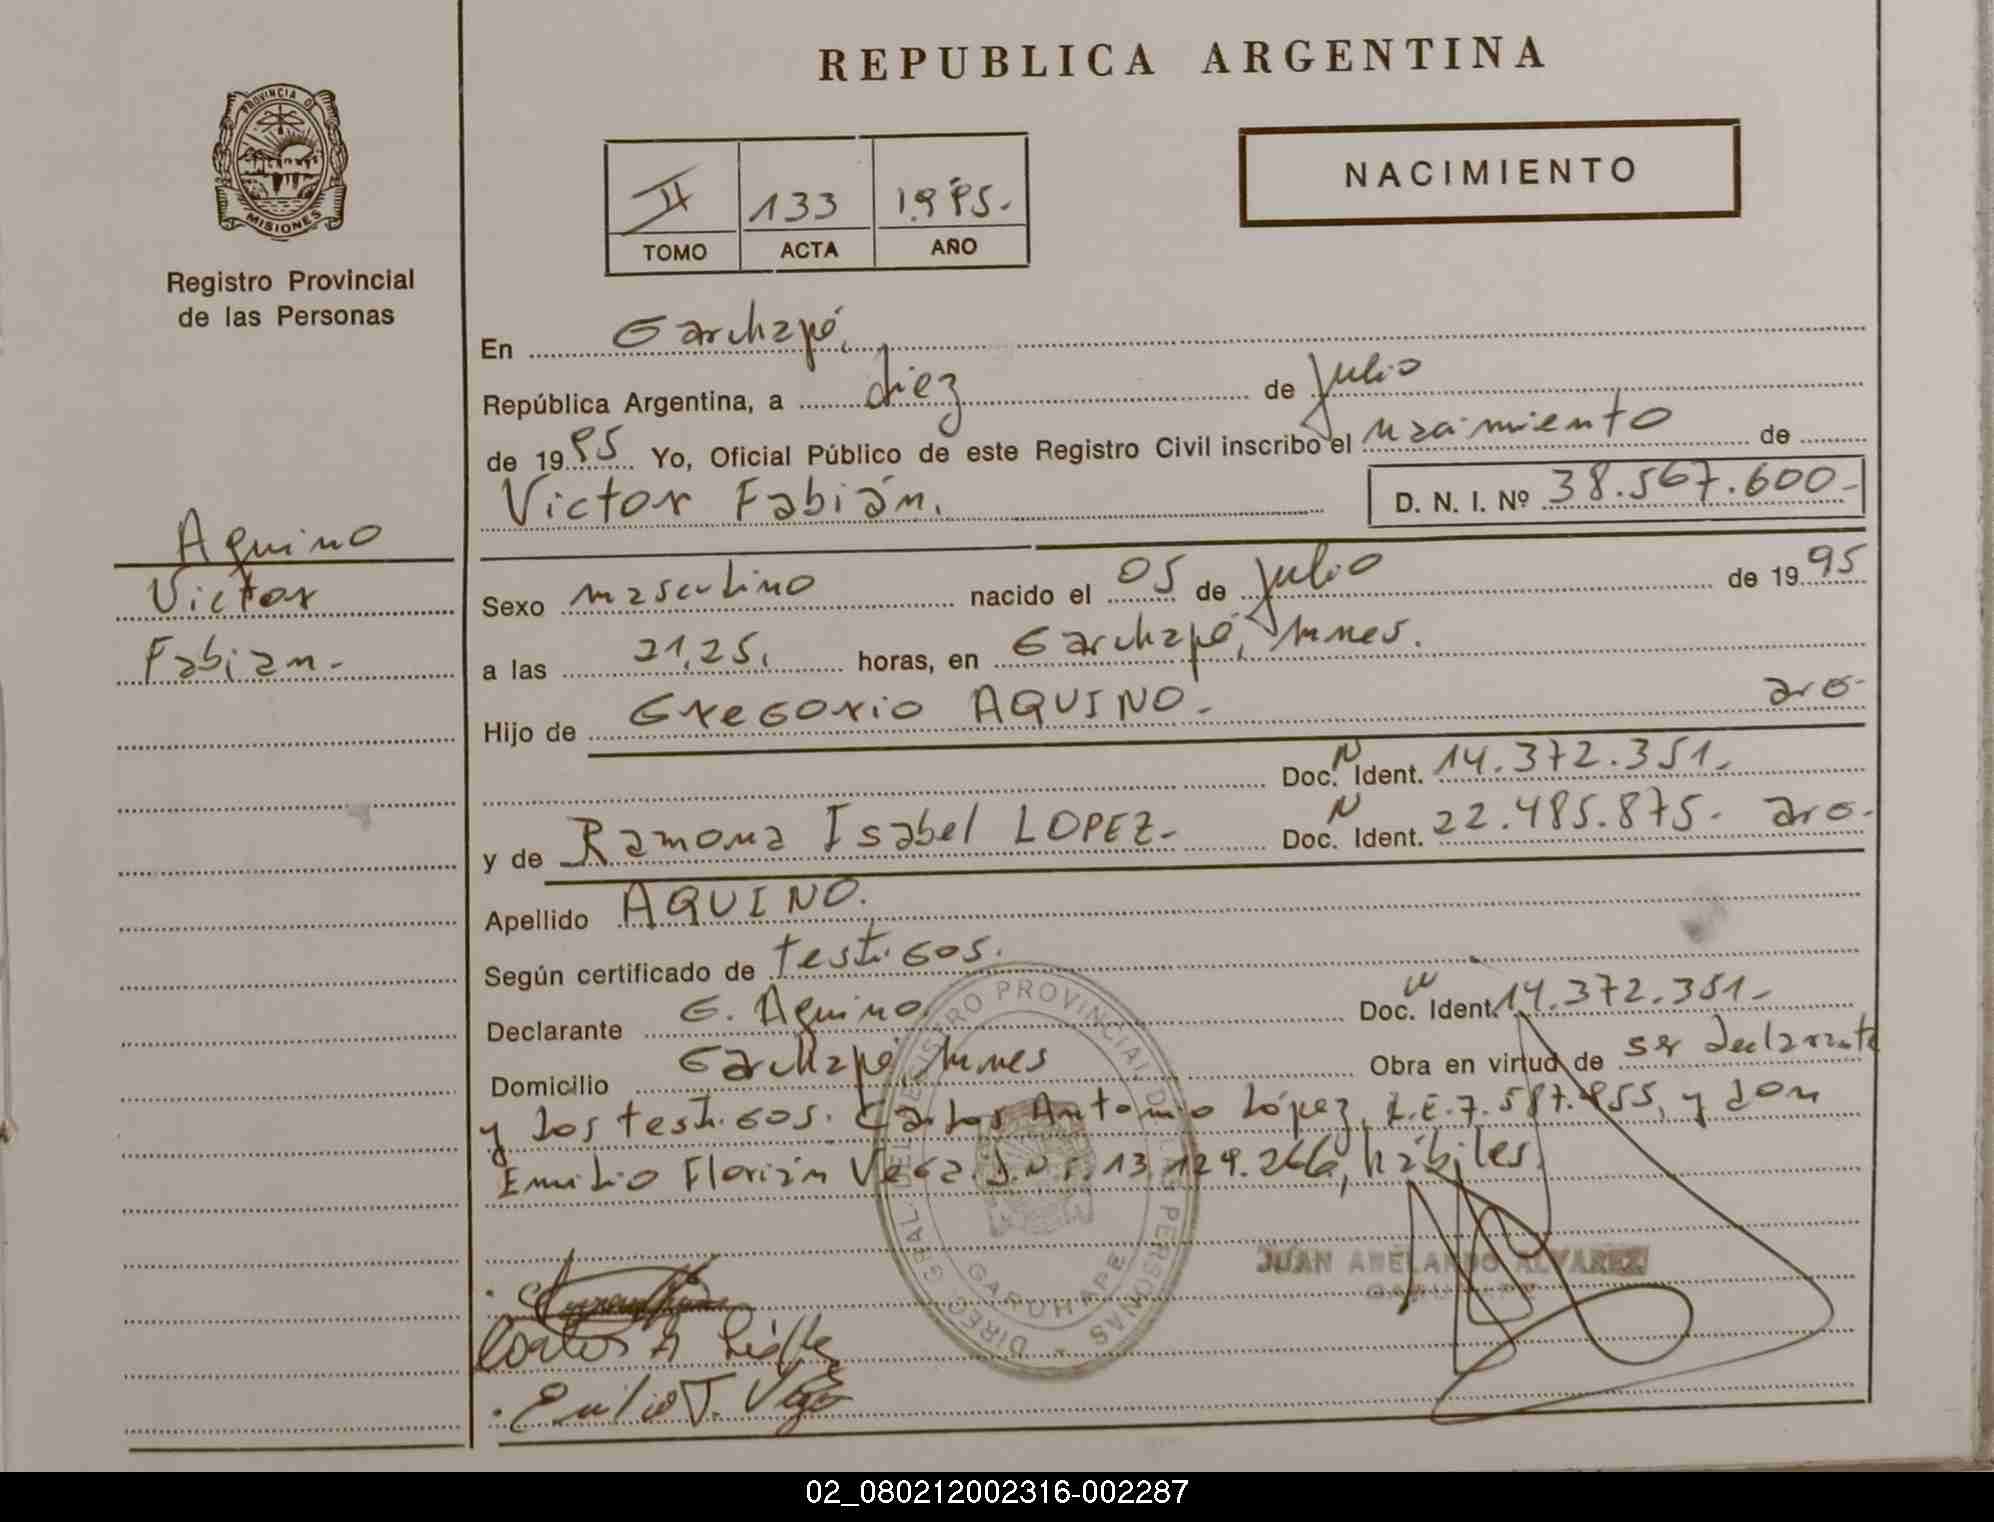 REPUBLICA ARGENTINA
PROVINCIA DE
MISIONES
Registro Provincial
de las Personas
II 133 1995.
TOMO ACTA AÑO
NACIMIENTO
En Garuhapé,
República Argentina, a diez de Julio
de 1995 Yo, Oficial Público de este Registro Civil inscribo el nacimiento de
Victor Fabián.
D. N. I. Nº 38.567.600-
Aquino
Victor
Fabian.-
Sexo masculino nacido el 05 de Julio de 1995
a las 21,25, horas, en Garuhapé, Mnes.
Hijo de Gregorio AQUINO.- aro-
Doc. N Ident. 14.372.351.-
y de Ramona Isabel LOPEZ.- Doc. N Ident. 22.485.875. aro-
Apellido AQUINO.
Según certificado de testigos.
Declarante G. Aquino Doc. N Ident. 14.372.351.-
Domicilio Garuhapé, Mnes Obra en virtud de ser declarante
y los testigos. Carlos Antonio López, L.E.7.587.955, y don
Emilio Florián Vega. D.N.I. 13.129.266, hábiles.
DIREC. GRAL. DEL REGISTRO PROVINCIAL DE LAS PERSONAS
GARUHAPE
JUAN ABELARDO ALVAREZ
GARUHAPE
Carlos A López
Emilio F. Vega
02_080212002316-002287